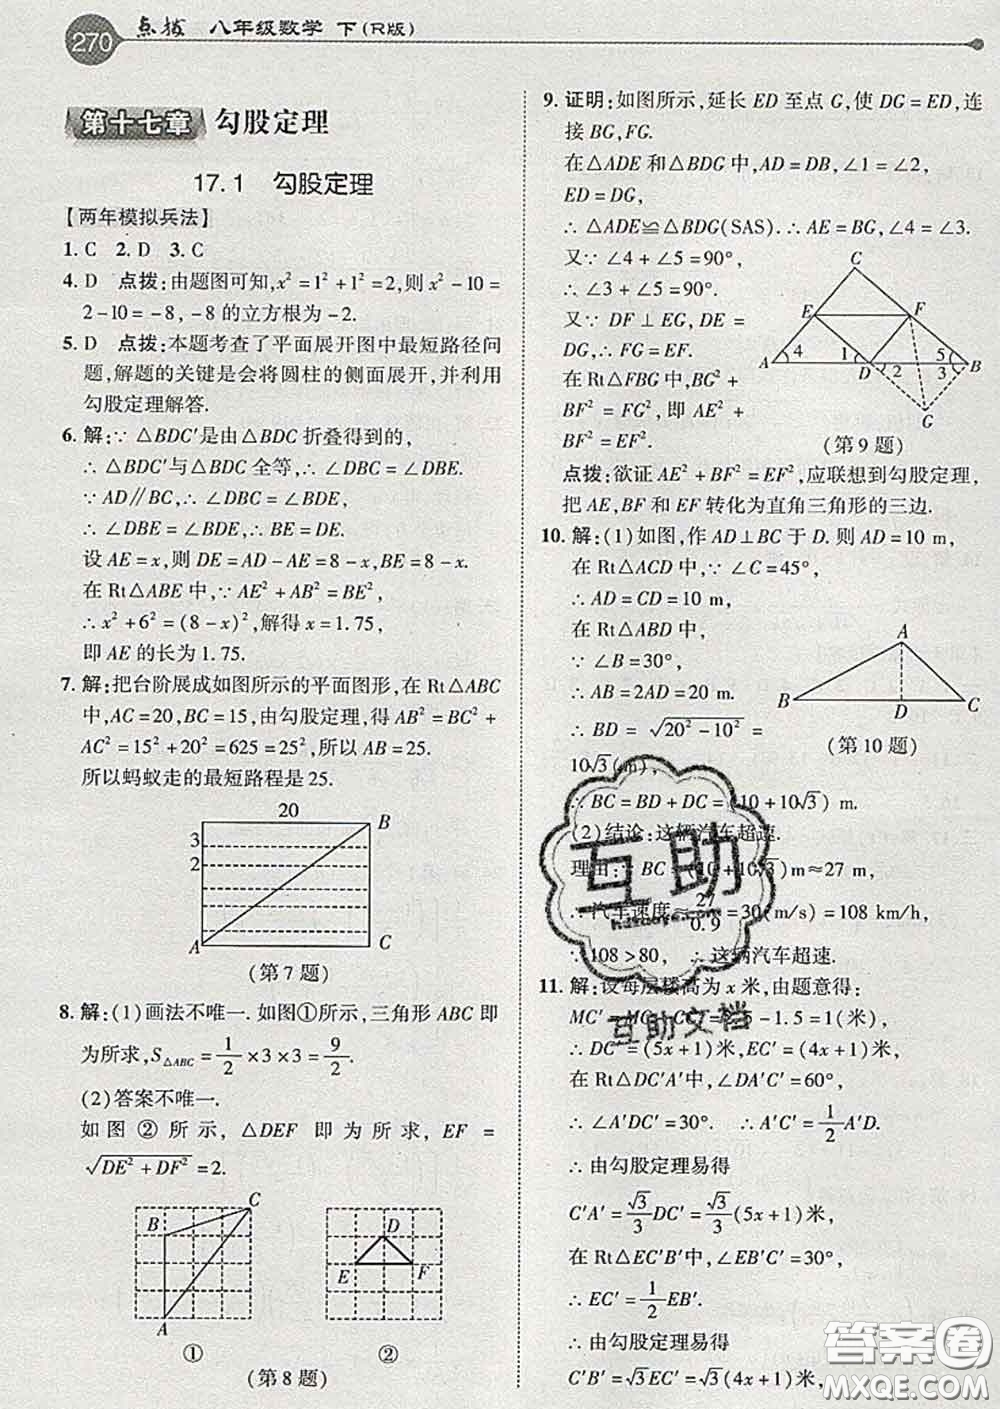 270 点拨 八年级数学 下(R版)
第十七章 勾股定理
17.1 勾股定理
【两年模拟兵法】
1. C 2. D 3. C
4. D 点拨:由题图可知,x²=1²+1²=2,则x²-10=
2-10=-8,-8的立方根为-2.
5. D 点拨:本题考查了平面展开图中最短路径问
题,解题的关键是会将圆柱的侧面展开,并利用
勾股定理解答.
6. 解:∵△BDC′是由△BDC折叠得到的,
∴△BDC′与△BDC全等,∴∠DBC=∠DBE.
∵AD∥BC,∴∠DBC=∠BDE,
∴∠DBE=∠BDE,∴BE=DE.
设AE=x,则DE=AD-AE=8-x,BE=8-x.
在Rt△ABE中,∵AE²+AB²=BE²,
∴x²+6²=(8-x)²,解得x=1.75,
即AE的长为1.75.
7. 解:把台阶展成如图所示的平面图形,在Rt△ABC
中,AC=20,BC=15,由勾股定理,得AB²=BC²+
AC²=15²+20²=625=25²,所以AB=25.
所以蚂蚁走的最短路程是25.
20
B
3
2
A
C
(第7题)
8. 解:(1)画法不唯一.如图①所示,三角形ABC即
为所求,S△ABC=1/2×3×3=9/2.
(2)答案不唯一.
如图②所示,△DEF即为所求,EF=
√(DE²+DF²)=2.
B C A ①
D E F ②
(第8题)
9. 证明:如图所示,延长ED至点G,使DG=ED,连
接BG,FG.
在△ADE和△BDG中,AD=DB,∠1=∠2,
ED=DG,
∴△ADE≌△BDG(SAS).∴AE=BG,∠4=∠3.
又∵∠4+∠5=90°,
∴∠3+∠5=90°.
又∵DF⊥EG,DE=
DG,∴FG=EF.
在Rt△FBG中,BG²+
BF²=FG²,即AE²+
BF²=EF².
C
E F
A 4 1 D 2 5 3 B
G
(第9题)
点拨:欲证AE²+BF²=EF²,应联想到勾股定理,
把AE,BF和EF转化为直角三角形的三边.
10. 解:(1)如图,作AD⊥BC于D.则AD=10 m,
在Rt△ACD中,∵∠C=45°,
∴AD=CD=10 m,
在Rt△ABD中,
∵∠B=30°,
∴AB=2AD=20 m.
∴BD=√(20²-10²)=
10√3(m),
A
B D C
(第10题)
∴BC=BD+DC=(10+10√3) m.
(2)结论:这辆汽车超速.
理由:∵BC=(10+10√3)m≈27 m,
∴汽车速度≈27/0.9=30(m/s)=108 km/h,
∵108>80, ∴这辆汽车超速.
11. 解:设每层楼高为x米,由题意得:
MC′=MC-CC′=2.5-1.5=1(米),
∴DC′=(5x+1)米,EC′=(4x+1)米,
在Rt△DC′A′中,∠DA′C′=60°,
∴∠A′DC′=30°. ∴A′C′=1/2A′D.
∴由勾股定理易得
C′A′=√3/3DC′=√3/3(5x+1)米,
在Rt△EC′B′中,∠EB′C′=30°,
∴EC′=1/2EB′.
∴由勾股定理易得
C′B′=√3EC′=√3(4x+1)米,
互助
互助文档
答案圈
MXQE.COM